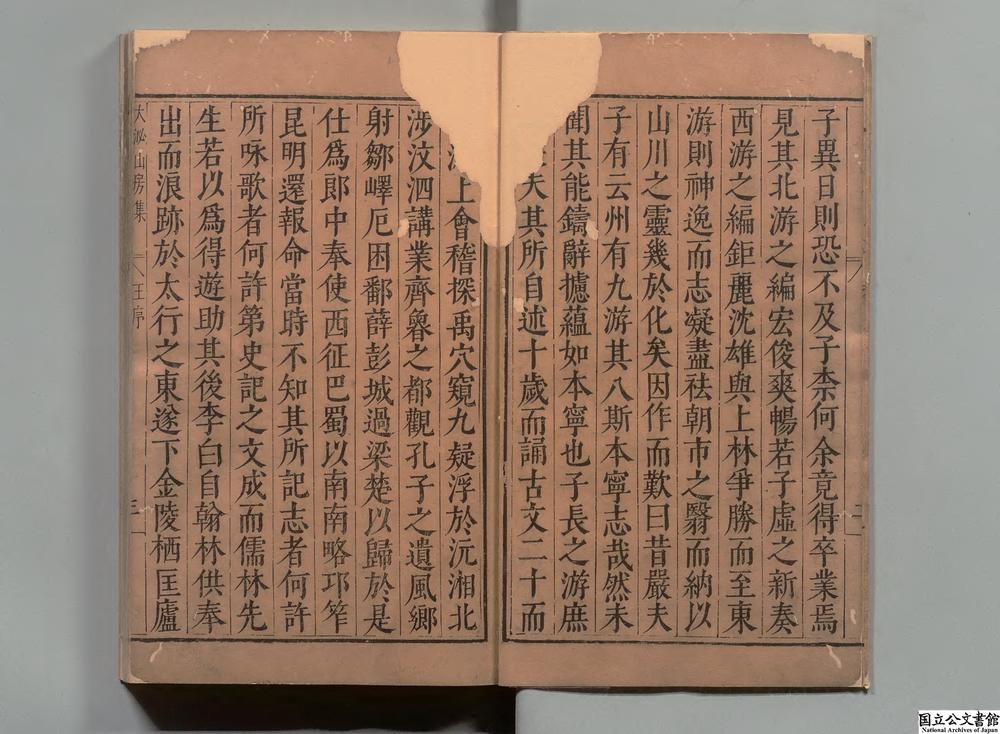 子異日則恐不及子柰何余竟得卒業焉
見其北游之編宏俊爽暢若子虛之新奏
西游之編鉅麗沈雄與上林爭勝而至東
游則神逸而志凝盡袪朝市之翳而納以
山川之靈幾於化矣因作而歎曰昔嚴夫
子有云州有九游其八斯本寧志哉然未
聞其能鑄辭攄蘊如本寧也子長之游庶
夫其所自述十歲而誦古文二十而
上會稽探禹穴窺九疑浮於沅湘北
涉汶泗講業齊魯之都觀孔子之遺風鄉
射鄒嶧厄困鄱薛彭城過梁楚以歸於是
仕爲郎中奉使西征巴蜀以南南略邛笮
昆明還報命當時不知其所記志者何許
所咏歌者何許第史記之文成而儒林先
生若以爲得遊助其後李白自翰林供奉
出而浪跡於太行之東遂下金陵栖匡廬
大泌山房集
汪序
三
二
国立公文書館
National Archives of Japan